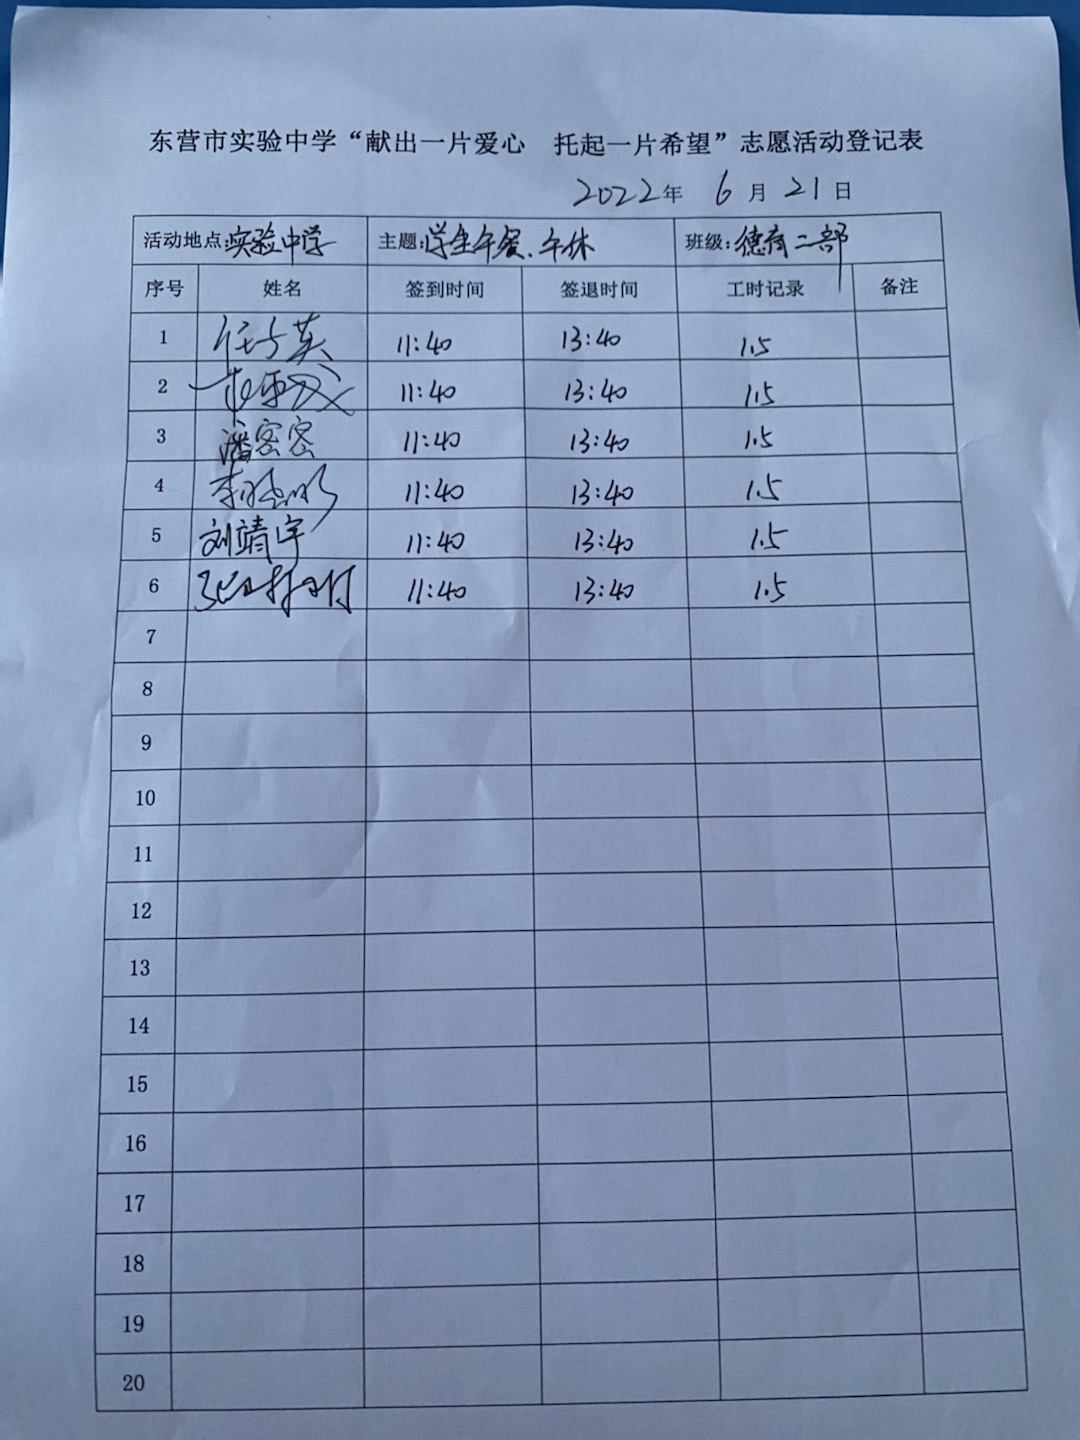 东营市实验中学“献出一片爱心 托起一片希望”志愿活动登记表
2022年 6月21日
活动地点:实验中学 主题:学生午餐、午休 班级:德育二部
序号 姓名 签到时间 签退时间 工时记录 备注
1 英 11:40 13:40 1.5
2 11:40 13:40 1.5
3 潘密密 11:40 13:40 1.5
4 李 11:40 13:40 1.5
5 刘靖宇 11:40 13:40 1.5
6 11:40 13:40 1.5
7
8
9
10
11
12
13
14
15
16
17
18
19
20